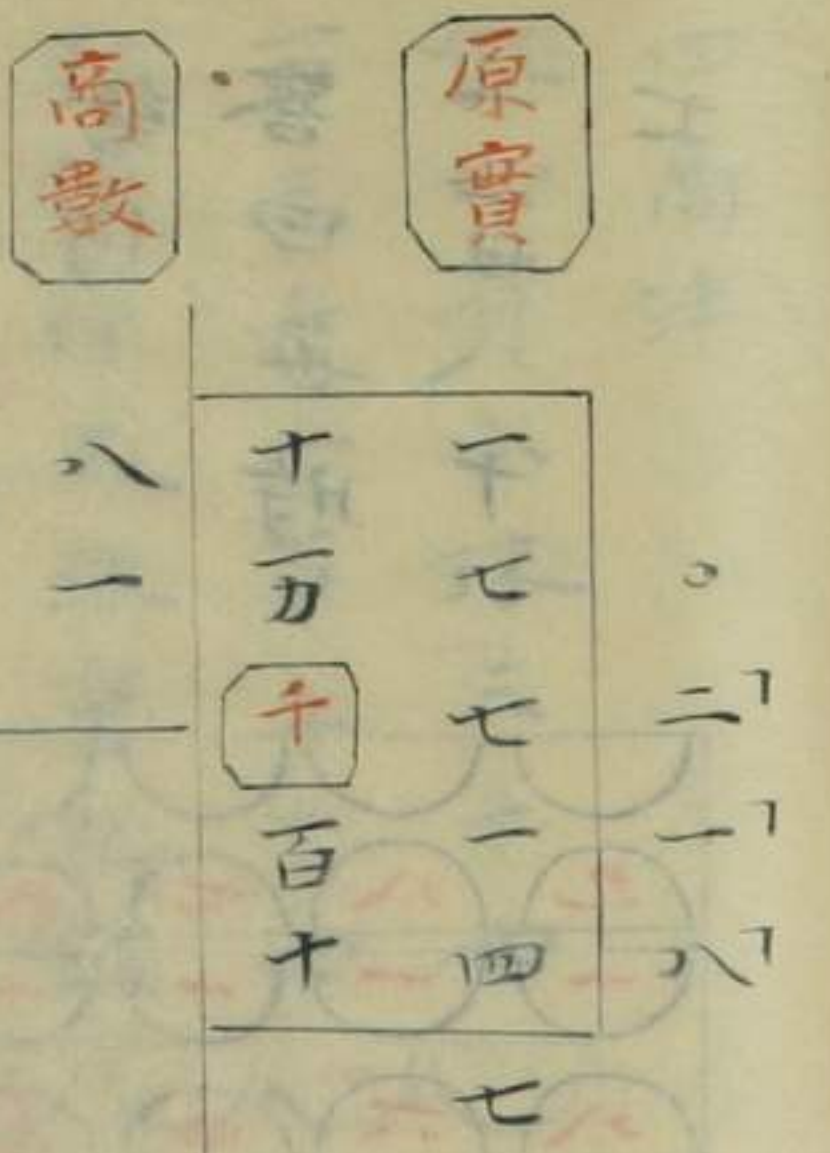 〇二一八
原實
一七七一四七
十万千百十
商數
八一